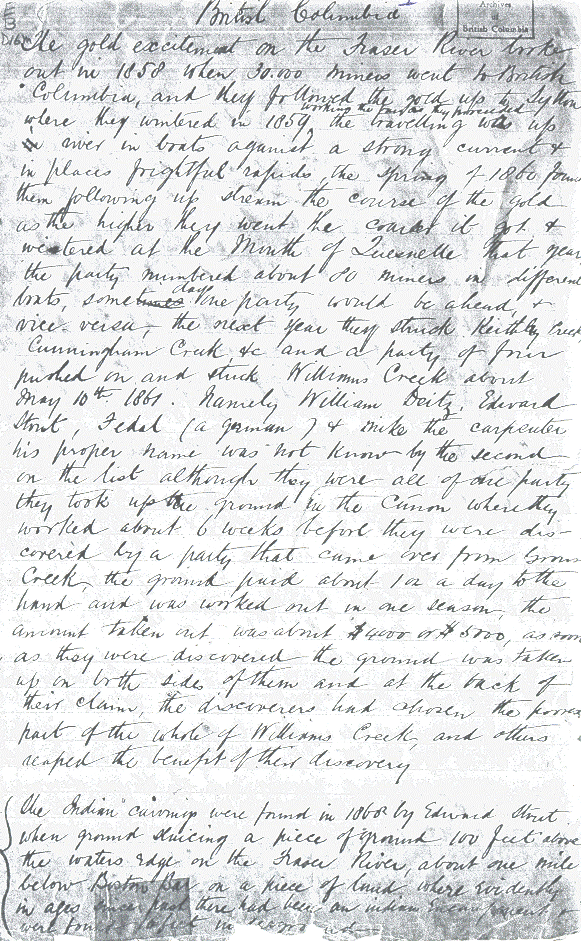 British Columbia
Archives
of
British Columbia
The gold excitement on the Fraser River broke
out in 1858 when 30.000 miners went to British
Columbia, and they followed the gold up to Lytton
working the bars as they proceeded
where they wintered in 1859, the travelling was up
river in boats against a strong current &
in places frightful rapids, the spring of 1860 found
them following up stream the course of the gold
as the higher they went the coarser it got &
wintered at the Mouth of Quesnelle that year
the party numbered about 80 miners in different
boats, some days one party would be ahead, &
vice versa, the next year they struck Keithly Creek
Cunningham Creek, &c and a party of four
pushed on and struck Williams Creek about
May 10th 1861. Namely William Deitz, Edward
Stout, Fedal (a german) & Mike the carpenter
his proper name was not know by the second
on the list although they were all of one party
they took up the ground in the Canon where they
worked about 6 weeks before they were dis-
covered by a party that came over from Grouse
Creek, the ground paid about 1 oz a day to the
hand and was worked out in one season, the
amount taken out was about $4000 or $5000, as soon
as they were discovered the ground was taken
up on both sides of them and at the back of
their claim, the discoverers had chosen the poorest
part of the whole of Williams Creek, and others
reaped the benefit of their discovery
The Indian carvings were found in 1868 by Edward Stout
when ground sluicing a piece of ground 100 feet above
the waters edge on the Fraser River, about one mile
below Boston Bar on a piece of land where evidently
in ages past there had been an indian Encampment, &
were found